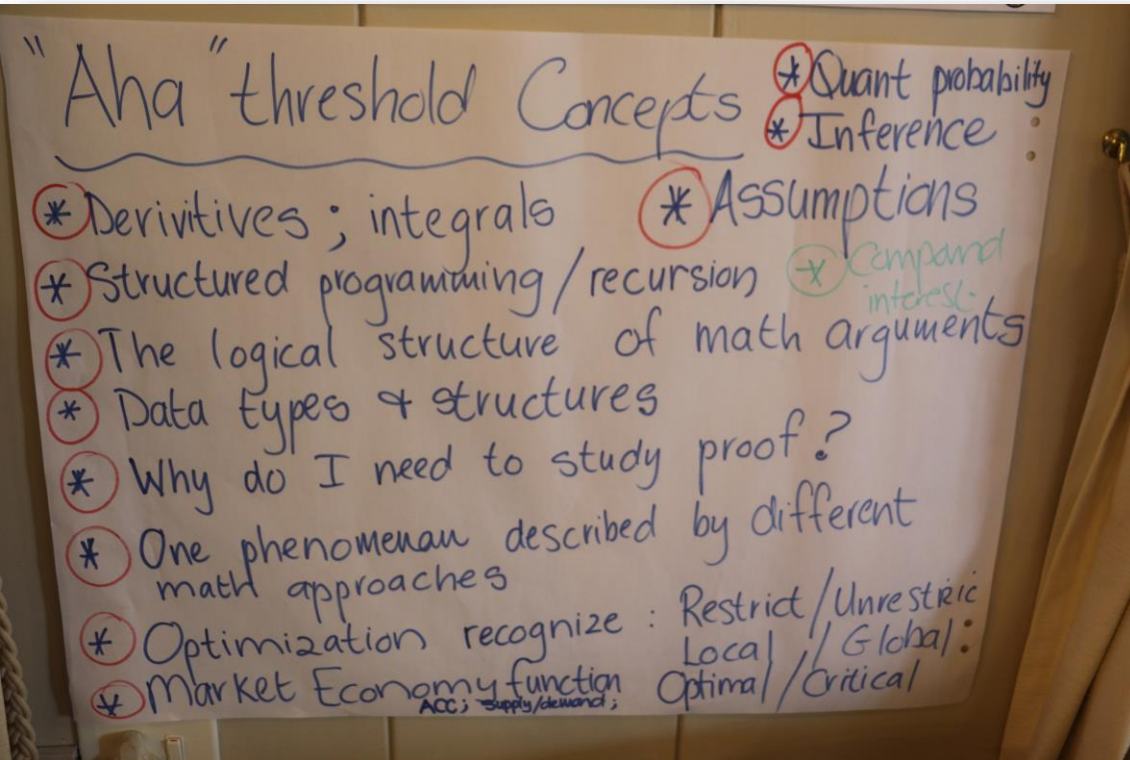 "Aha" threshold Concepts
* Quant probability
* Inference
* Derivitives ; integrals
* Assumptions
* Structured programming / recursion
* Compound interest.
* The logical structure of math arguments
* Data types & structures
* Why do I need to study proof?
* One phenomenan described by different
math approaches
* Optimization recognize : Restrict / Unrestric
Local / Global :
Optimal / Critical
* Market Economy function
ACC; supply/demand;